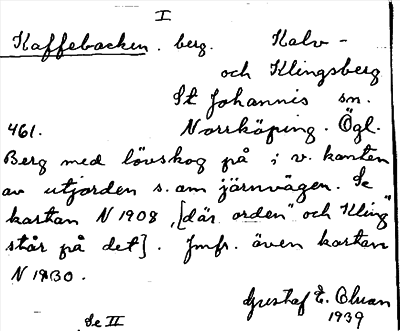 I
Kaffebacken. berg. Kalv-
och Klingsberg
St Johannis sn.
461. Norrköping. Ögl.
Berg med lövskog på i v. kanten
av utjorden s. om järnvägen. Se
kartan N 1908, [där orden" och Kling"
står på det]. Jmfr. även kartan
N 1930.
Gustaf E. Oluan
1939
Se II